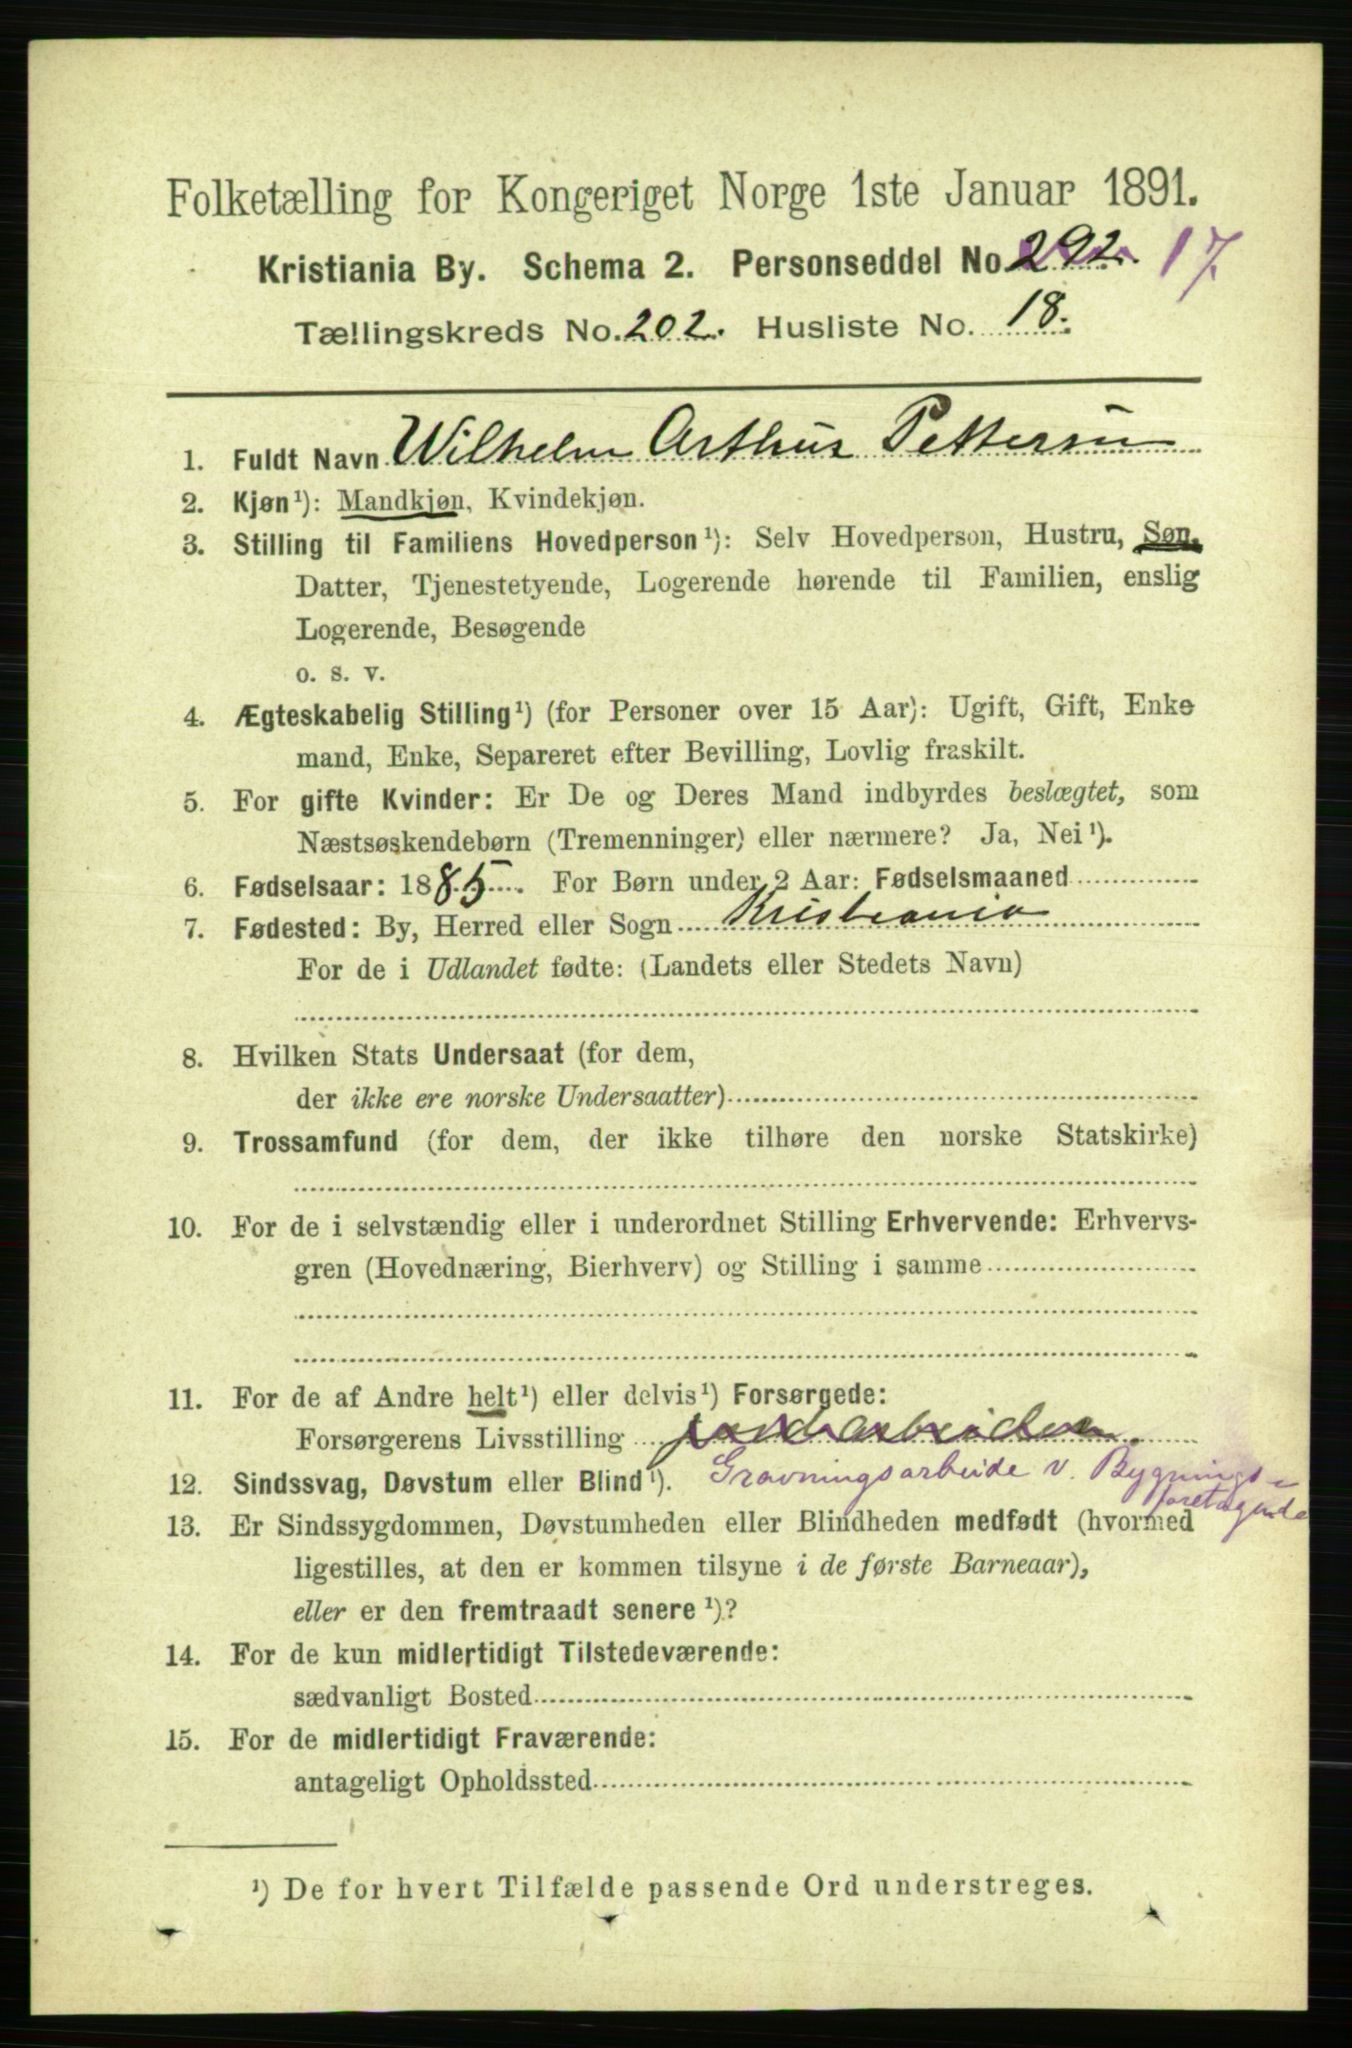 Folketælling for Kongeriget Norge 1ste Januar 1891.
Kristiania By. Schema 2. Personseddel No. 292. 17
Tællingskreds No. 202. Husliste No. 18.
1. Fuldt Navn Wilhelm Arthur Pettersen
2. Kjøn¹): Mandkjøn, Kvindekjøn.
3. Stilling til Familiens Hovedperson¹): Selv Hovedperson, Hustru, Søn,
Datter, Tjenestetyende, Logerende hørende til Familien, enslig
Logerende, Besøgende
o. s. v.
4. Ægteskabelig Stilling¹) (for Personer over 15 Aar): Ugift, Gift, Enke
mand, Enke, Separeret efter Bevilling, Lovlig fraskilt.
5. For gifte Kvinder: Er De og Deres Mand indbyrdes beslægtet, som
Næstsøskendebørn (Tremenninger) eller nærmere? Ja, Nei¹).
6. Fødselsaar: 1885. For Børn under 2 Aar: Fødselsmaaned
7. Fødested: By, Herred eller Sogn Kristiania
For de i Udlandet fødte: (Landets eller Stedets Navn)
8. Hvilken Stats Undersaat (for dem,
der ikke ere norske Undersaatter)
9. Trossamfund (for dem, der ikke tilhøre den norske Statskirke)
10. For de i selvstændig eller i underordnet Stilling Erhvervende: Erhvervs-
gren (Hovednæring, Bierhverv) og Stilling i samme
11. For de af Andre helt¹) eller delvis¹) Forsørgede:
Forsørgerens Livsstilling jordarbeider.
12. Sindssvag, Døvstum eller Blind¹). Gravningsarbeide v. Bygnings-
foretagende
13. Er Sindssygdommen, Døvstumheden eller Blindheden medfødt (hvormed
ligestilles, at den er kommen tilsyne i de første Barneaar),
eller er den fremtraadt senere¹)?
14. For de kun midlertidigt Tilstedeværende:
sædvanligt Bosted
15. For de midlertidigt Fraværende:
antageligt Opholdssted
¹) De for hvert Tilfælde passende Ord understreges.